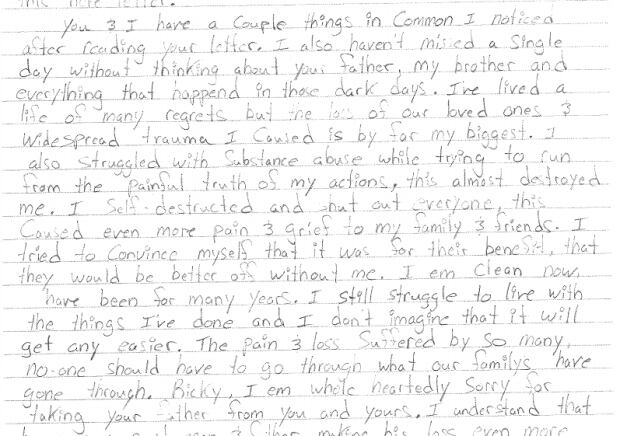 this note letter.
You & I have a Couple things in Common I noticed
after reading your letter. I also haven't missed a Single
day without thinking about your father, my brother and
everything that happend in those dark days. I've lived a
life of many regrets but the loss of our loved ones &
widespread trauma I Caused is by far my biggest. I
also Struggled with Substance abuse while trying to run
from the painful truth of my actions, this almost destroyed
me. I Self-destructed and shut out everyone, this
Caused even more pain & grief to my family & friends. I
tried to Convince myself that it was for their benefit, that
they would be better off without me. I em Clean now,
have been for many years. I still struggle to live with
the things I've done and I don't imagine that it will
get any easier. The pain & loss Suffered by So many,
no-one should have to go through what our familys have
gone through. Ricky, I em whole heartedly Sorry for
taking your father from you and yours. I understand that
making his loss even more